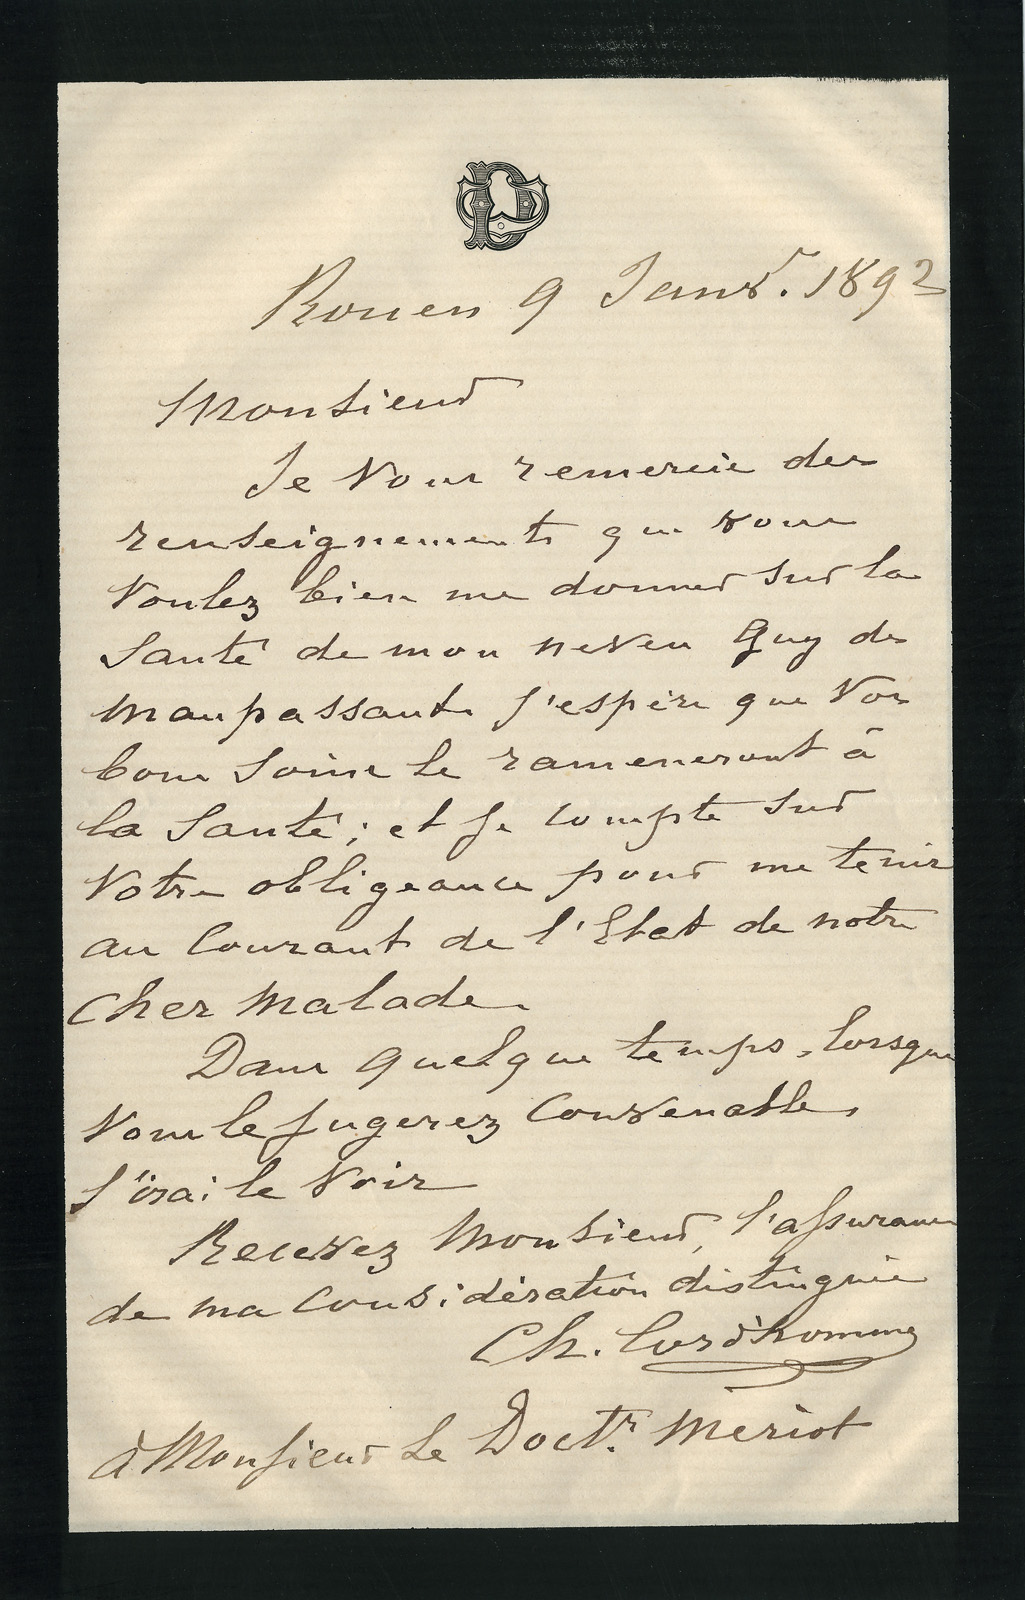 Rouen 9 Janvr. 1892
Monsieur
Je Vous remercie des
renseignements que vous
Voulez bien me donner sur la
Santé de mon neveu Guy de
Maupassant. J'espère que Vos
bons soins le rameneront à
la Santé; et je compte sur
Votre obligeance pour me tenir
au Courant de l'Etat de notre
Cher Malade.
Dans quelque temps, lorsque
Vous le jugerez Convenable,
J'irai le Voir
Recevez Monsieur, l'assurance
de ma Considération distinguée
Ch. Cord'homme
à Monsieur Le Doctr. Meriot